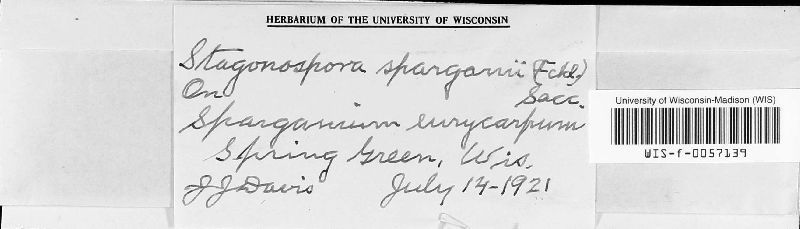 HERBARIUM OF THE UNIVERSITY OF WISCONSIN
Stagonospora sparganii (Fckl.)
Sacc.
On
Sparganium eurycarpum
Spring Green, Wis.
J J Davis July 14-1921
University of Wisconsin-Madison (WIS)
WIS-f-0057139